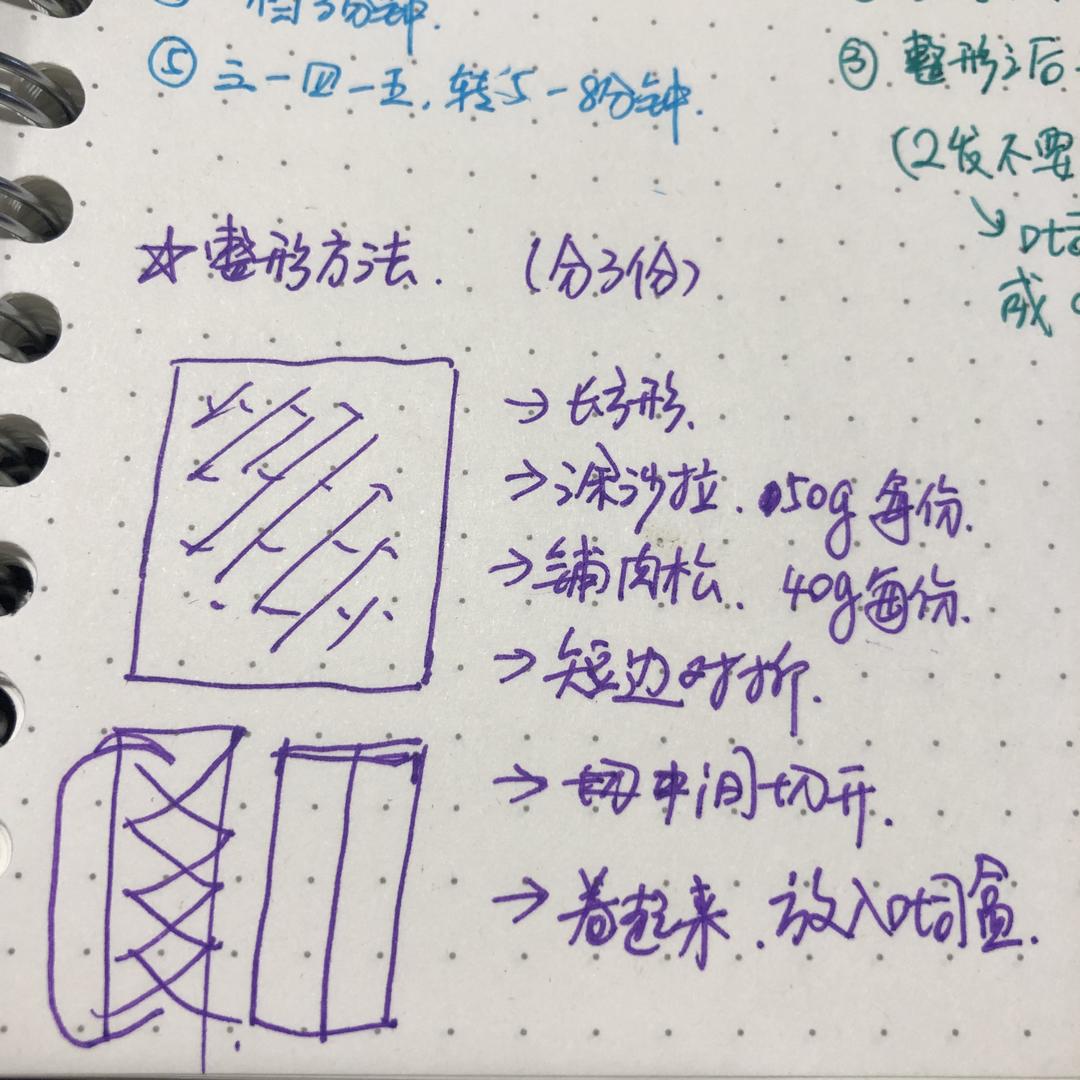 停3分钟.
⑤ 三一四一五, 转5-8分钟.
③ 整形之后
(2发不要
↘ 吐司
成
☆ 整形方法. (分3份)
→ 长方形.
→ 涂沙拉. 50g 每份.
→ 铺肉松. 40g每份.
→ 短边对折.
→ 中间切开.
→ 卷起来.放入吐司盒.